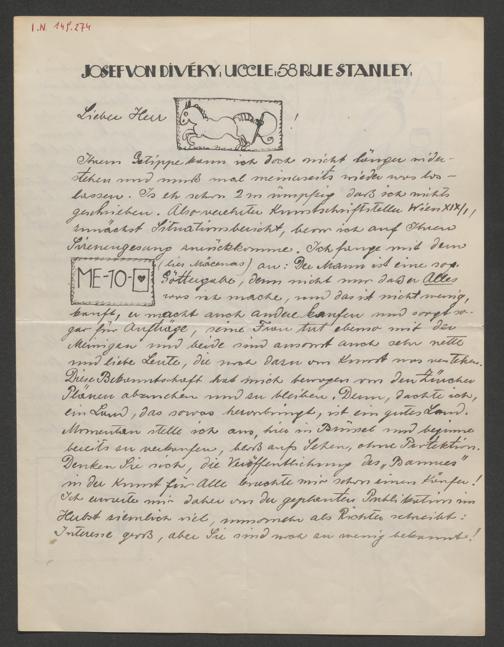 I.N. 149.274
JOSEF VON DIVÉKY, UCCLE, 58 RUE STANLEY,
Lieber Herr !
Ihrem Gstippe kann ich doch nicht länger wider-
stehen und muß mal meinerseits wieder was los-
lassen. Is eh schon 2 m ümpfig daß ich nichts
geschrieben. Also verehrter Kunstschriftsteller Wien XIX/1,
zunächst Situationsbericht, bevor ich auf Ihren
Sirenengesang zurückkomme. Ich fange mit dem
ME-10-♥
(lies Mäcenas) an: Der Mann ist eine sog.
Göttergabe, denn nicht nur daß er Alles
was ich mache, und das ist nicht wenig,
kauft, er macht auch andere kaufen und sorgt so-
gar für Aufträge, seine Frau tut ebenso mit der
Meinigen und beide sind ansonst auch sehr nette
und liebe Leute, die noch dazu von Kunst was verstehen.
Diese Bekanntschaft hat mich bewogen von den Züricher
Plänen abzusehen und zu bleiben. Denn, dachte ich,
ein Land, das sowas hervorbringt, ist ein gutes Land.
Momentan stelle ich aus, hier in Brüssel und beginne
bereits zu verkaufen, bloß aufs Sehen, ohne Protektion.
Denken Sie sich, die Veröffentlichung des
in der Kunst für Alle brachte mir schon einen Käufer!
Ich erwarte mir daher von der geplanten Publikation im
Herbst ziemlich viel, umsomehr als Richter schreibt:
Interesse groß, aber Sie sind noch zu wenig bekannt!